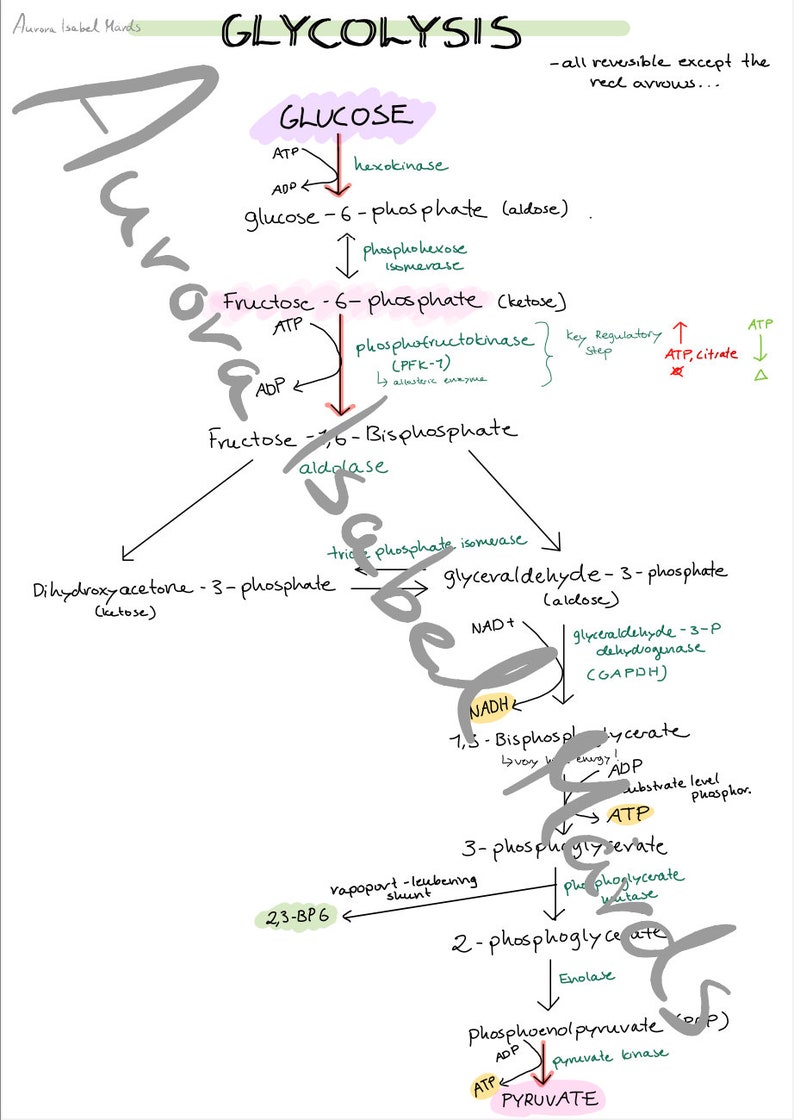 Aurora Isabel Mards
GLYCOLYSIS
-all reversible except the
red arrows...
GLUCOSE
ATP
ADP
hexokinase
glucose-6-phosphate (aldose)
phosphohexose
isomerase
Fructose-6-phosphate (ketose)
ATP
ADP
phosphofructokinase
(PFK-1)
↳ allosteric enzyme
Key Regulatory
Step
↑
ATP, citrate
ATP
↓
△
Fructose-1,6-Bisphosphate
aldolase
phosphate isomerase
Dihydroxyacetone-3-phosphate
(ketose)
glyceraldehyde-3-phosphate
(aldose)
NAD+
NADH
glyceraldehyde-3-P
dehydrogenase
(GAPDH)
1,3-Bisphosphoglycerate
↳ very high energy!
ADP
substrate level
phosphor.
ATP
3-phosphoglycerate
rapoport-leubering
shunt
2,3-BPG
phosphoglycerate
mutase
2-phosphoglycerate
Enolase
phosphoenolpyruvate (PEP)
ADP
ATP
pyruvate kinase
PYRUVATE
Aurora Isabel Mards